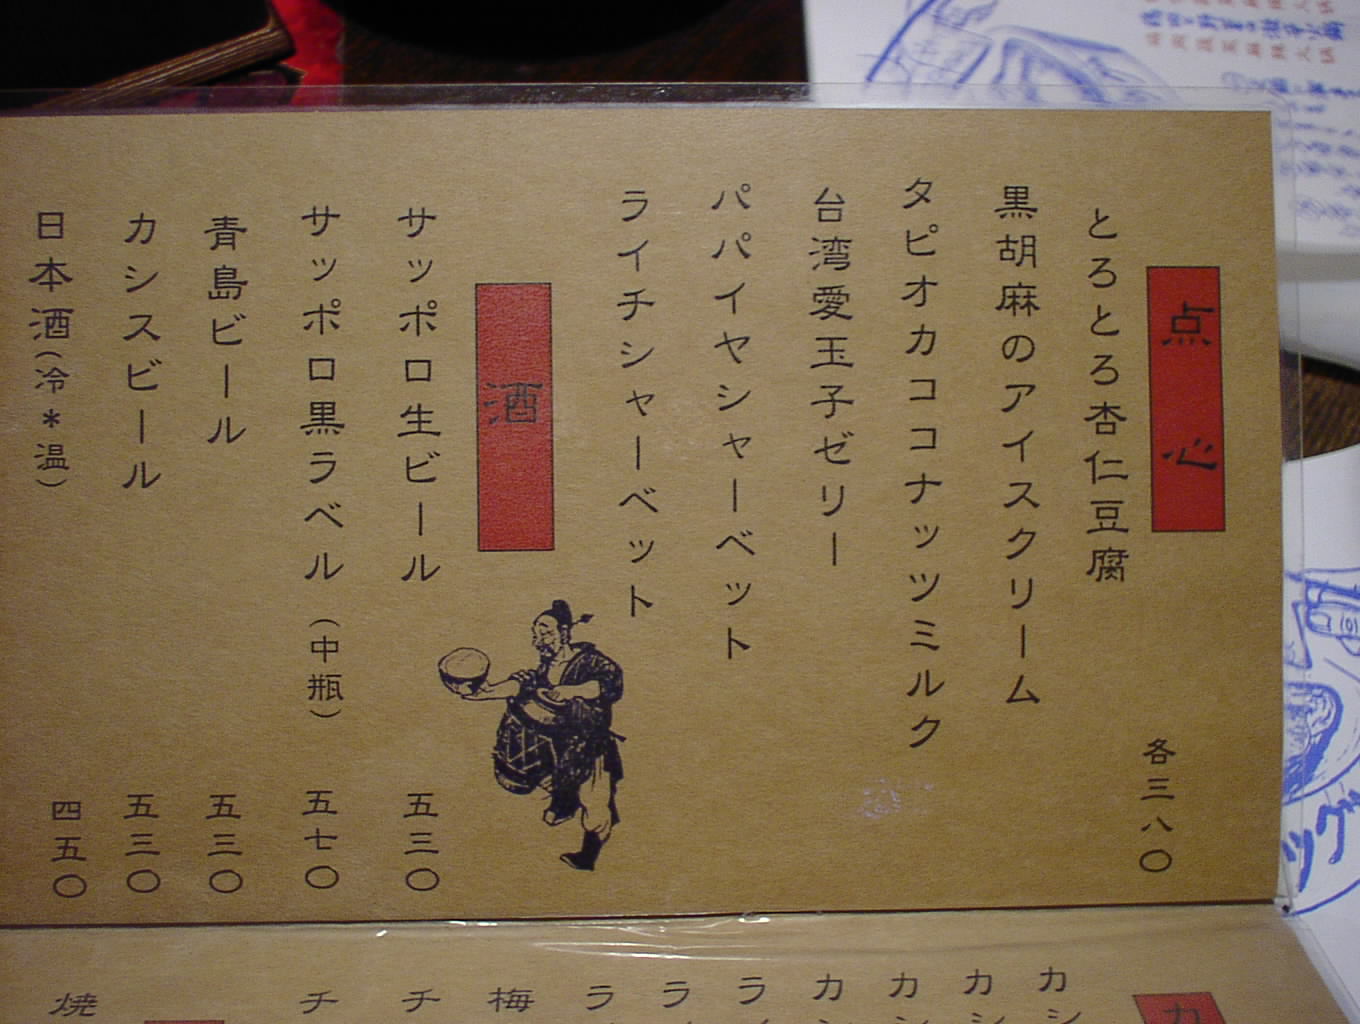 点心
各三八〇
とろとろ杏仁豆腐
黒胡麻のアイスクリーム
タピオカココナッツミルク
台湾愛玉子ゼリー
パパイヤシャーベット
ライチシャーベット
酒
サッポロ生ビール 五三〇
サッポロ黒ラベル（中瓶） 五七〇
青島ビール 五三〇
カシスビール 五三〇
日本酒（冷＊温） 四五〇
カ
カシ
カシ
カ
カ
ラ
ラ
ラ
梅
チ
チ
焼
ッグ